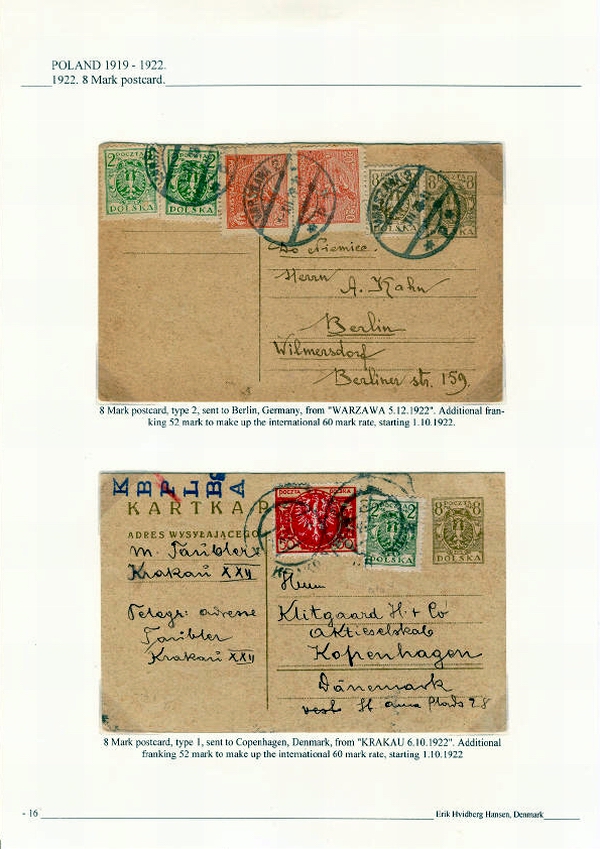 POLAND 1919 - 1922.
1922. 8 Mark postcard.
2 POCZTA 2
POLSKA
2 POCZTA 2
POLSKA
8 POCZTA
POLSKA
8 POCZTA 8
POLSKA
Do Niemiec.
Herrn A. Kahn
Berlin
Wilmersdorf
Berliner str. 159
8 Mark postcard, type 2, sent to Berlin, Germany, from "WARZAWA 5.12.1922". Additional fran-
king 52 mark to make up the international 60 mark rate, starting 1.10.1922.
KARTKA P
ADRES WYSYŁAJĄCEGO
M. Taubler
Krakau XXII
Telegr: adresse
Taubler
Krakau XXII
POCZTA POLSKA
2 2
POLSKA
8 POCZTA 8
POLSKA
Klitgaard H. & Co
Aktieselskab
Kopenhagen
Dänemark
vest St anna Plads 28
8 Mark postcard, type 1, sent to Copenhagen, Denmark, from "KRAKAU 6.10.1922". Additional
franking 52 mark to make up the international 60 mark rate, starting 1.10.1922
- 16
Erik Hvidberg Hansen, Denmark